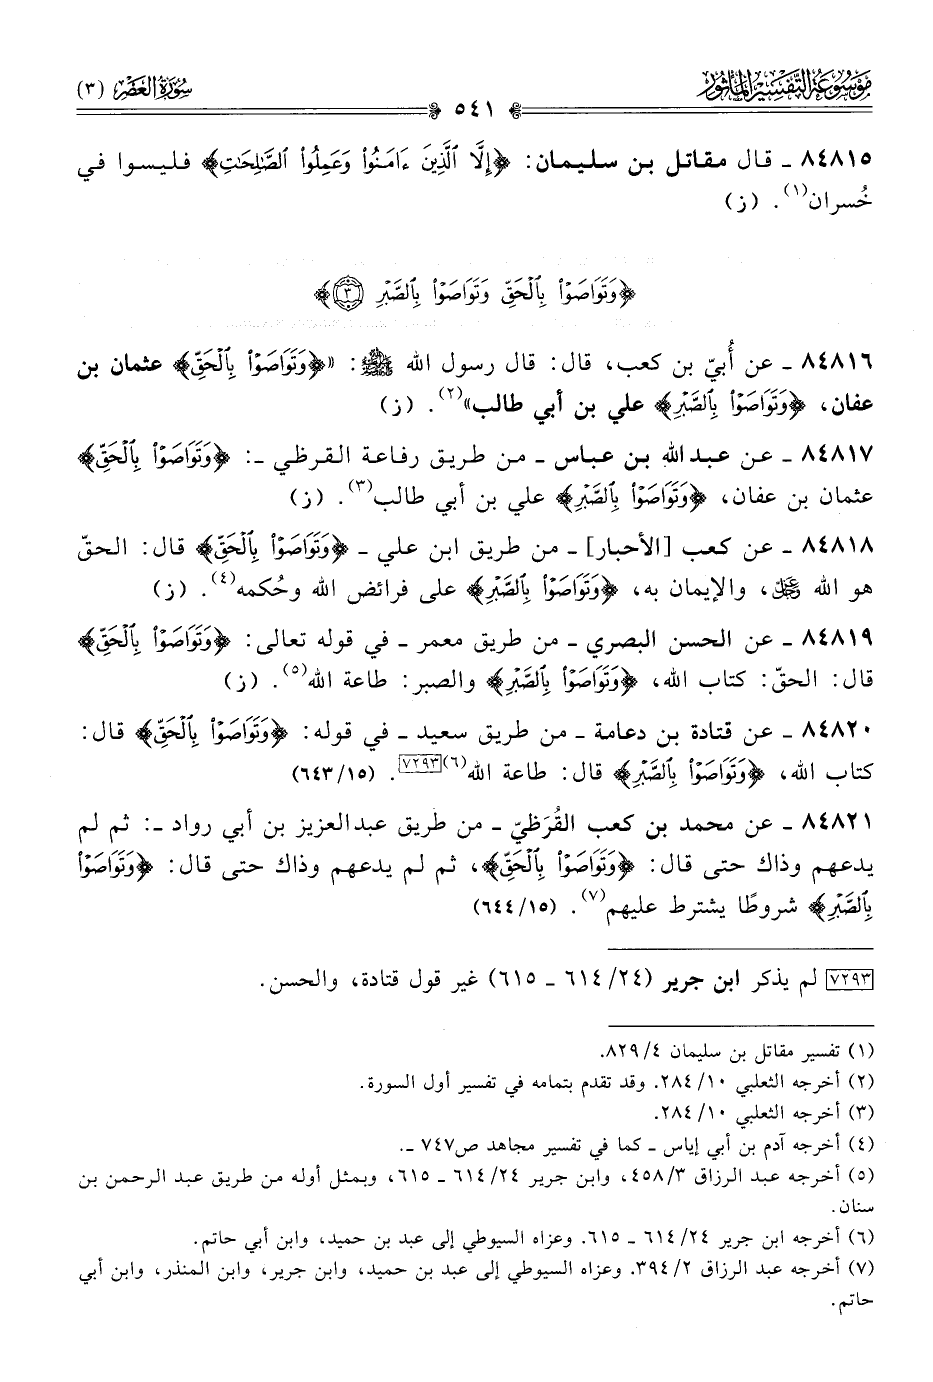 موسوعة التفسير المأثور
سورة العصر (٣)
٥٤١
٨٤٨١٥ ـ قال مقاتل بن سليمان: ﴿إِلَّا ٱلَّذِينَ ءَامَنُوا۟ وَعَمِلُوا۟ ٱلصَّـٰلِحَـٰتِ﴾ فليسوا في
خُسران(١). (ز)
﴿وَتَوَاصَوْا۟ بِٱلْحَقِّ وَتَوَاصَوْا۟ بِٱلصَّبْرِ ٣﴾
٨٤٨١٦ ـ عن أُبيّ بن كعب، قال: قال رسول الله ﷺ: «﴿وَتَوَاصَوْا۟ بِٱلْحَقِّ﴾ عثمان بن
عفان، ﴿وَتَوَاصَوْا۟ بِٱلصَّبْرِ﴾ علي بن أبي طالب»(٢). (ز)
٨٤٨١٧ ـ عن عبد الله بن عباس ـ من طريق رفاعة القرظي ـ: ﴿وَتَوَاصَوْا۟ بِٱلْحَقِّ﴾
عثمان بن عفان، ﴿وَتَوَاصَوْا۟ بِٱلصَّبْرِ﴾ علي بن أبي طالب(٣). (ز)
٨٤٨١٨ ـ عن كعب [الأحبار] ـ من طريق ابن علي ـ ﴿وَتَوَاصَوْا۟ بِٱلْحَقِّ﴾ قال: الحقّ
هو الله ﷻ، والإيمان به، ﴿وَتَوَاصَوْا۟ بِٱلصَّبْرِ﴾ على فرائض الله وحُكمه(٤). (ز)
٨٤٨١٩ ـ عن الحسن البصري ـ من طريق معمر ـ في قوله تعالى: ﴿وَتَوَاصَوْا۟ بِٱلْحَقِّ﴾
قال: الحقّ: كتاب الله، ﴿وَتَوَاصَوْا۟ بِٱلصَّبْرِ﴾ والصبر: طاعة الله(٥). (ز)
٨٤٨٢٠ ـ عن قتادة بن دعامة ـ من طريق سعيد ـ في قوله: ﴿وَتَوَاصَوْا۟ بِٱلْحَقِّ﴾ قال:
كتاب الله، ﴿وَتَوَاصَوْا۟ بِٱلصَّبْرِ﴾ قال: طاعة الله(٦)[٧٢٩٣]. (١٥/ ٦٤٣)
٨٤٨٢١ ـ عن محمد بن كعب القُرَظيّ ـ من طريق عبد العزيز بن أبي رواد ـ: ثم لم
يدعهم وذاك حتى قال: ﴿وَتَوَاصَوْا۟ بِٱلْحَقِّ﴾، ثم لم يدعهم وذاك حتى قال: ﴿وَتَوَاصَوْا۟
بِٱلصَّبْرِ﴾ شروطًا يشترط عليهم(٧). (١٥/ ٦٤٤)
[٧٢٩٣] لم يذكر ابن جرير (٢٤/ ٦١٤ ـ ٦١٥) غير قول قتادة، والحسن.
(١) تفسير مقاتل بن سليمان ٤/ ٨٢٩.
(٢) أخرجه الثعلبي ١٠/ ٢٨٤. وقد تقدم بتمامه في تفسير أول السورة.
(٣) أخرجه الثعلبي ١٠/ ٢٨٤.
(٤) أخرجه آدم بن أبي إياس ـ كما في تفسير مجاهد ص٧٤٧ ـ.
(٥) أخرجه عبد الرزاق ٣/ ٤٥٨، وابن جرير ٢٤/ ٦١٤ ـ ٦١٥، وبمثل أوله من طريق عبد الرحمن بن
سنان.
(٦) أخرجه ابن جرير ٢٤/ ٦١٤ ـ ٦١٥. وعزاه السيوطي إلى عبد بن حميد، وابن أبي حاتم.
(٧) أخرجه عبد الرزاق ٢/ ٣٩٤. وعزاه السيوطي إلى عبد بن حميد، وابن جرير، وابن المنذر، وابن أبي
حاتم.